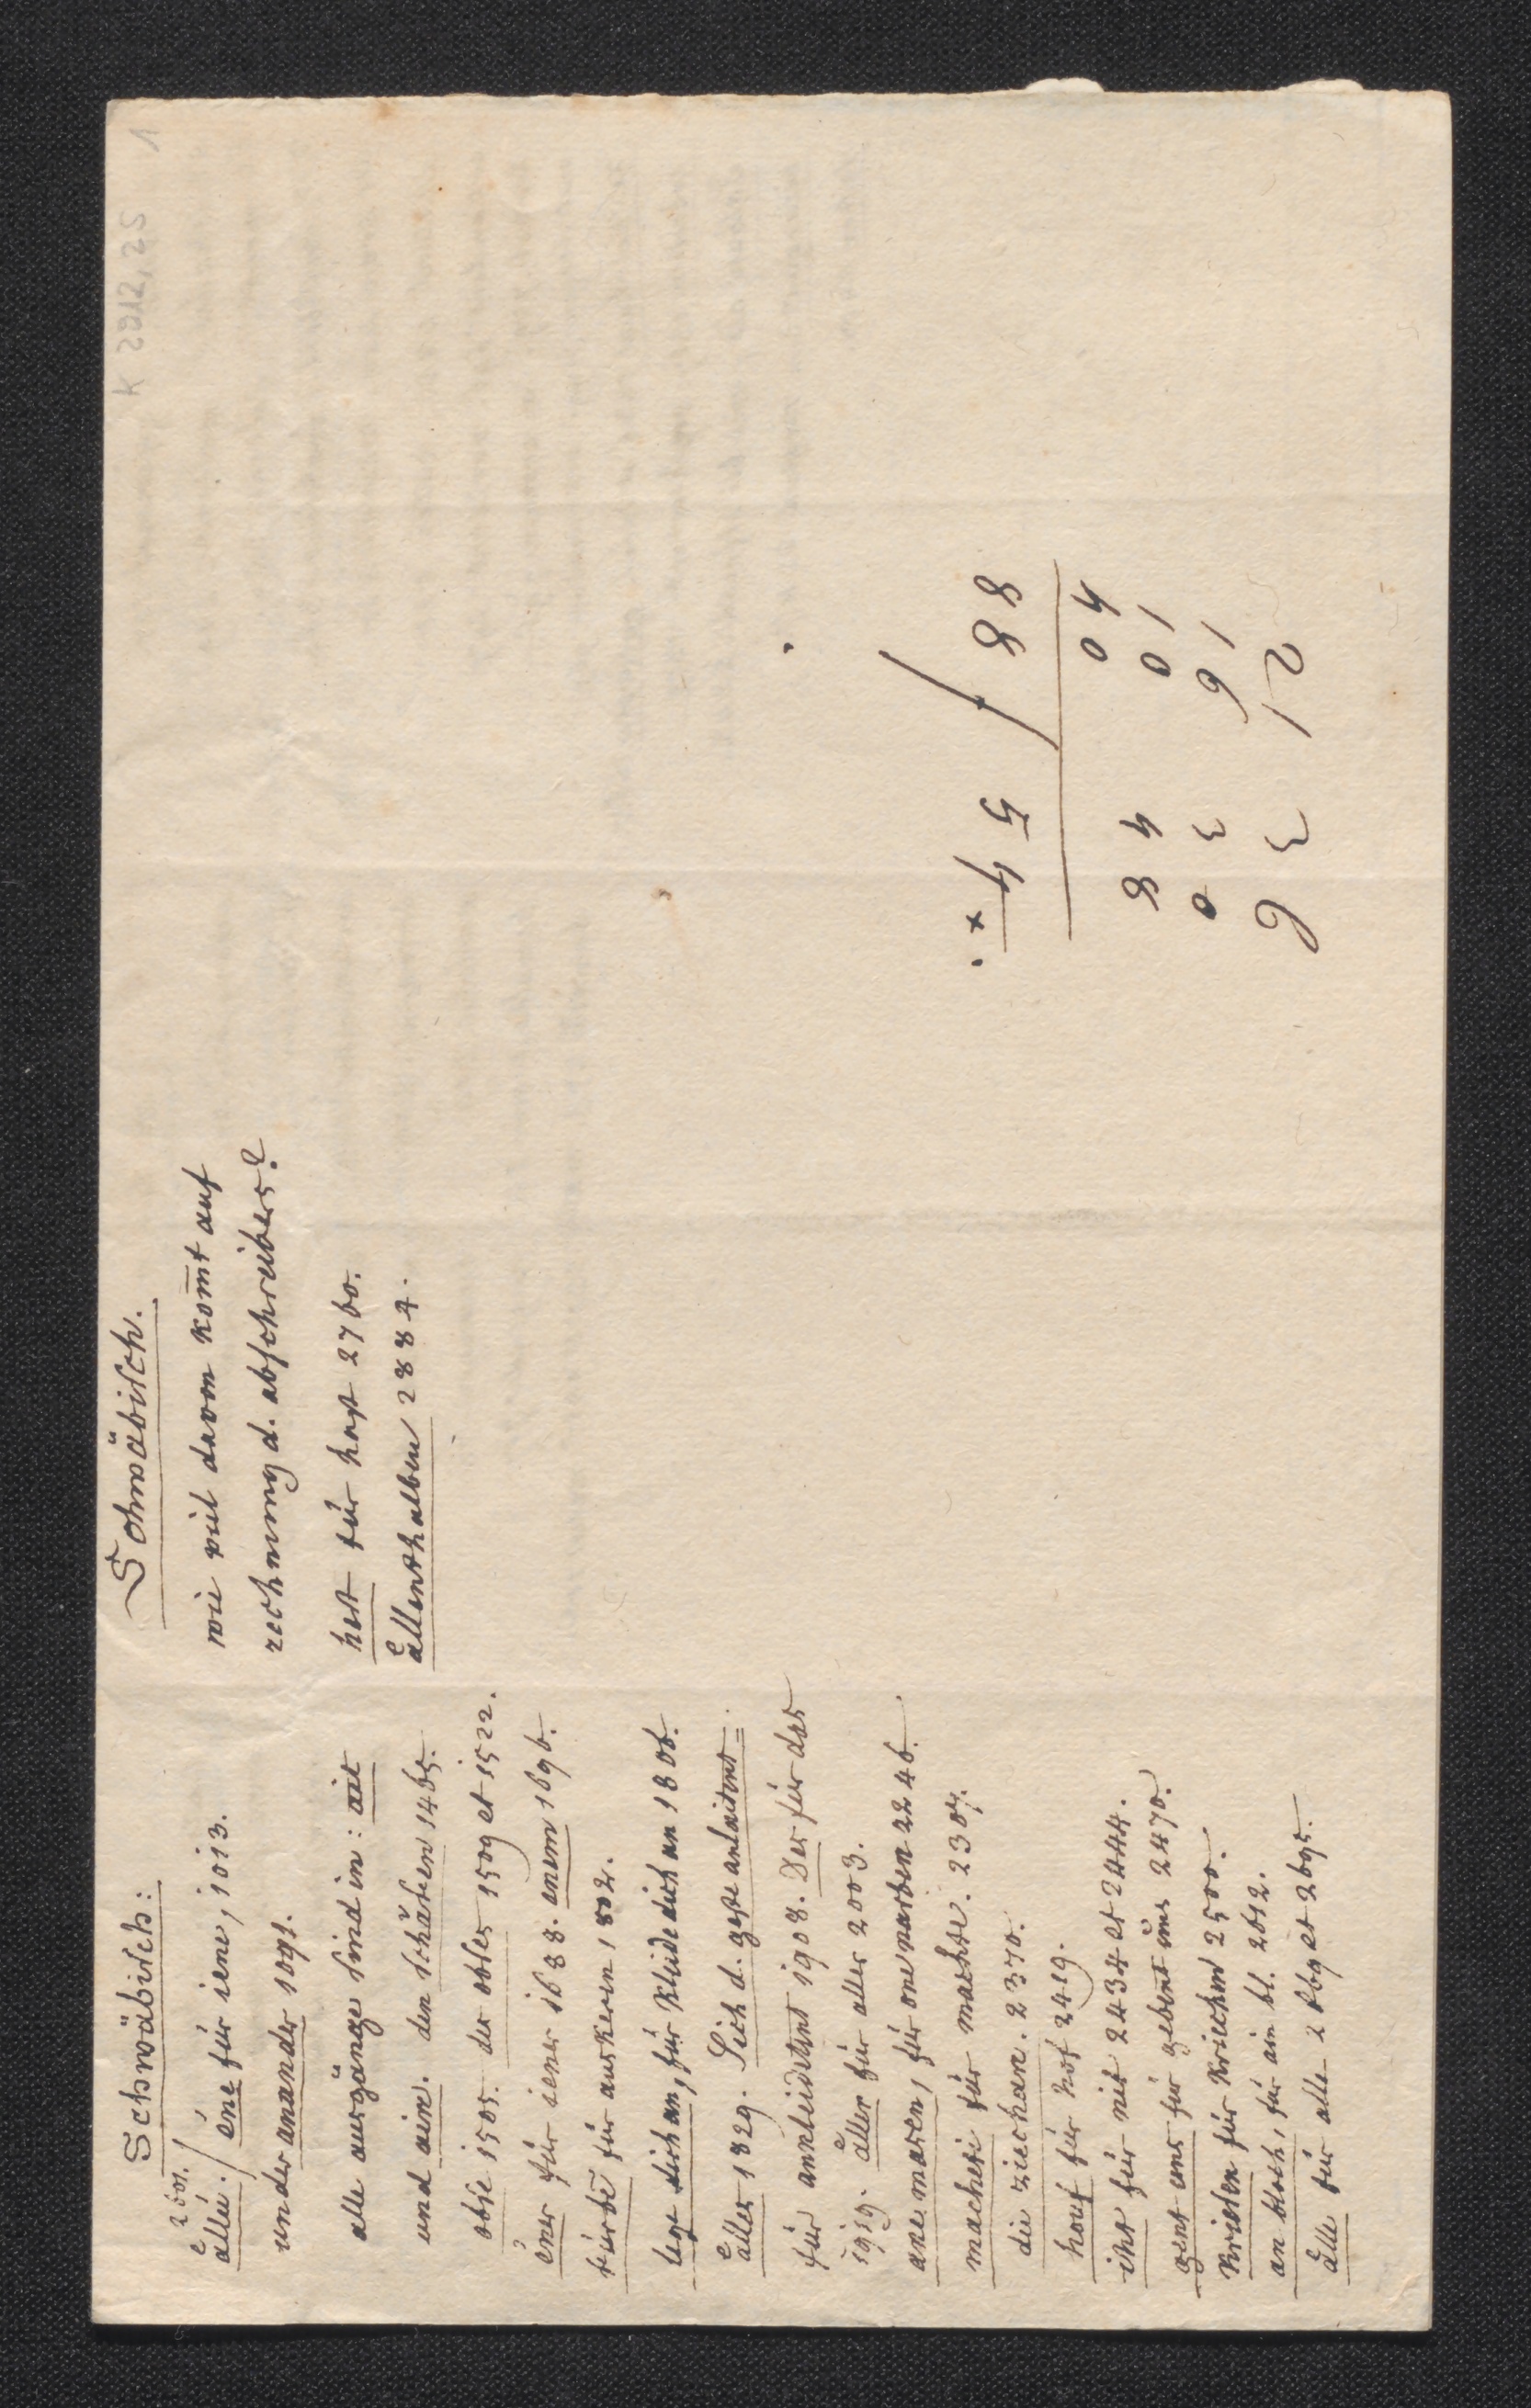 K 2912,25 1
Schwäbisch:
2601.
ålliu. / éne für iene, 1013.
under anander 1091.
alle ausgänge sind in: ait
und ain. den schäfen 1465.
obse 1505. der obser 1509 et 1522.
éner für iener 1688. enem 1696.
für auskeren 1802.
lege dich an, für kleide dich an 1806.
åller 1829. Sich d. geste anlaitent =
für ankleidetent 1908. Der für das
1919. åller für aller 2003.
ane masen, für one narben 2246.
macheti für machte. 2307.
die ziechan. 2370.
houf für hof 2419.
iht für nit 2434 et 2444.
gent uns für gebent uns 2470.
Kriesen für Kriechen 2500.
an bloch, für ain bl. 2612.
ålle für alle 2669 et 2695.
Schwäbisch.
wie viel davon kom̄t auf
rechnung d. abschreibers?
hest für hast 2760.
ållenthalben 2884.
x 4 5 / 8 8
0 4
8 4 0 1
0 3 6 1
6 3 1 2